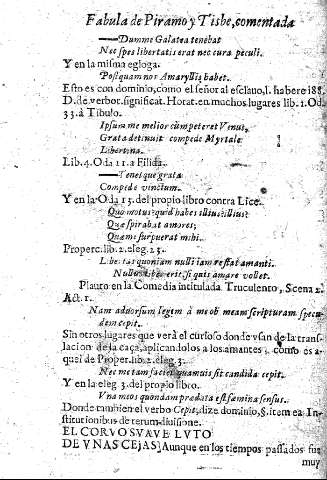 Fabula de Piramo y Tisbe, comentada
—Dumme Galatea tenebat
Nec spes libertatis erat nec cura peculi.
Y en la misma egloga.
Postquam nos Amaryllis habet.
Esto es con dominio, como el señor al esclauo, l. habere 188.
D. de verbor. significat. Horat. en muchos lugares lib. 1. Oda
33. à Tibulo.
Ipsum me melior cùm peteret Venus,
Grata detinuit compede Myrtale
Libertina.
Lib. 4. Oda 11. a Filida.
—Tenet que grata
Compede vinctum.
Y en la Oda 13. del propio libro contra Lice.
Quo motus? quid habes illius? illius?
Quæ spirabat amores;
Quæ me surpuerat mihi.
Properc. lib. 2. eleg. 23.
Libertas quoniam nulli iam restat amanti.
Nullus liber erit, si quis amare vollet.
Plauto en la Comedia intitulada Truculento, Scena 2.
Act. 1.
Nam aduorsum legem à me ob meam scripturam specu
dem cepit.
Sin otros lugares que verà el curioso donde vsan de la trans-
lacion de la caça, aplicandolos a los amantes, como es a-
quel de Proper. lib. 2. eleg. 3.
Nec me tam facies quamuis sit candida cepit.
Y en la eleg. 3. del propio libro.
Vna meos quondam prædata est fæmina sensus.
Donde tambien el verbo Cepit, dize dominio, §. item ea Ins-
titutionibus de rerum diuisione.
EL CORVO SVAVE LVTO
DE VNAS CEJAS] Aunque en los tiempos passados fue
muy